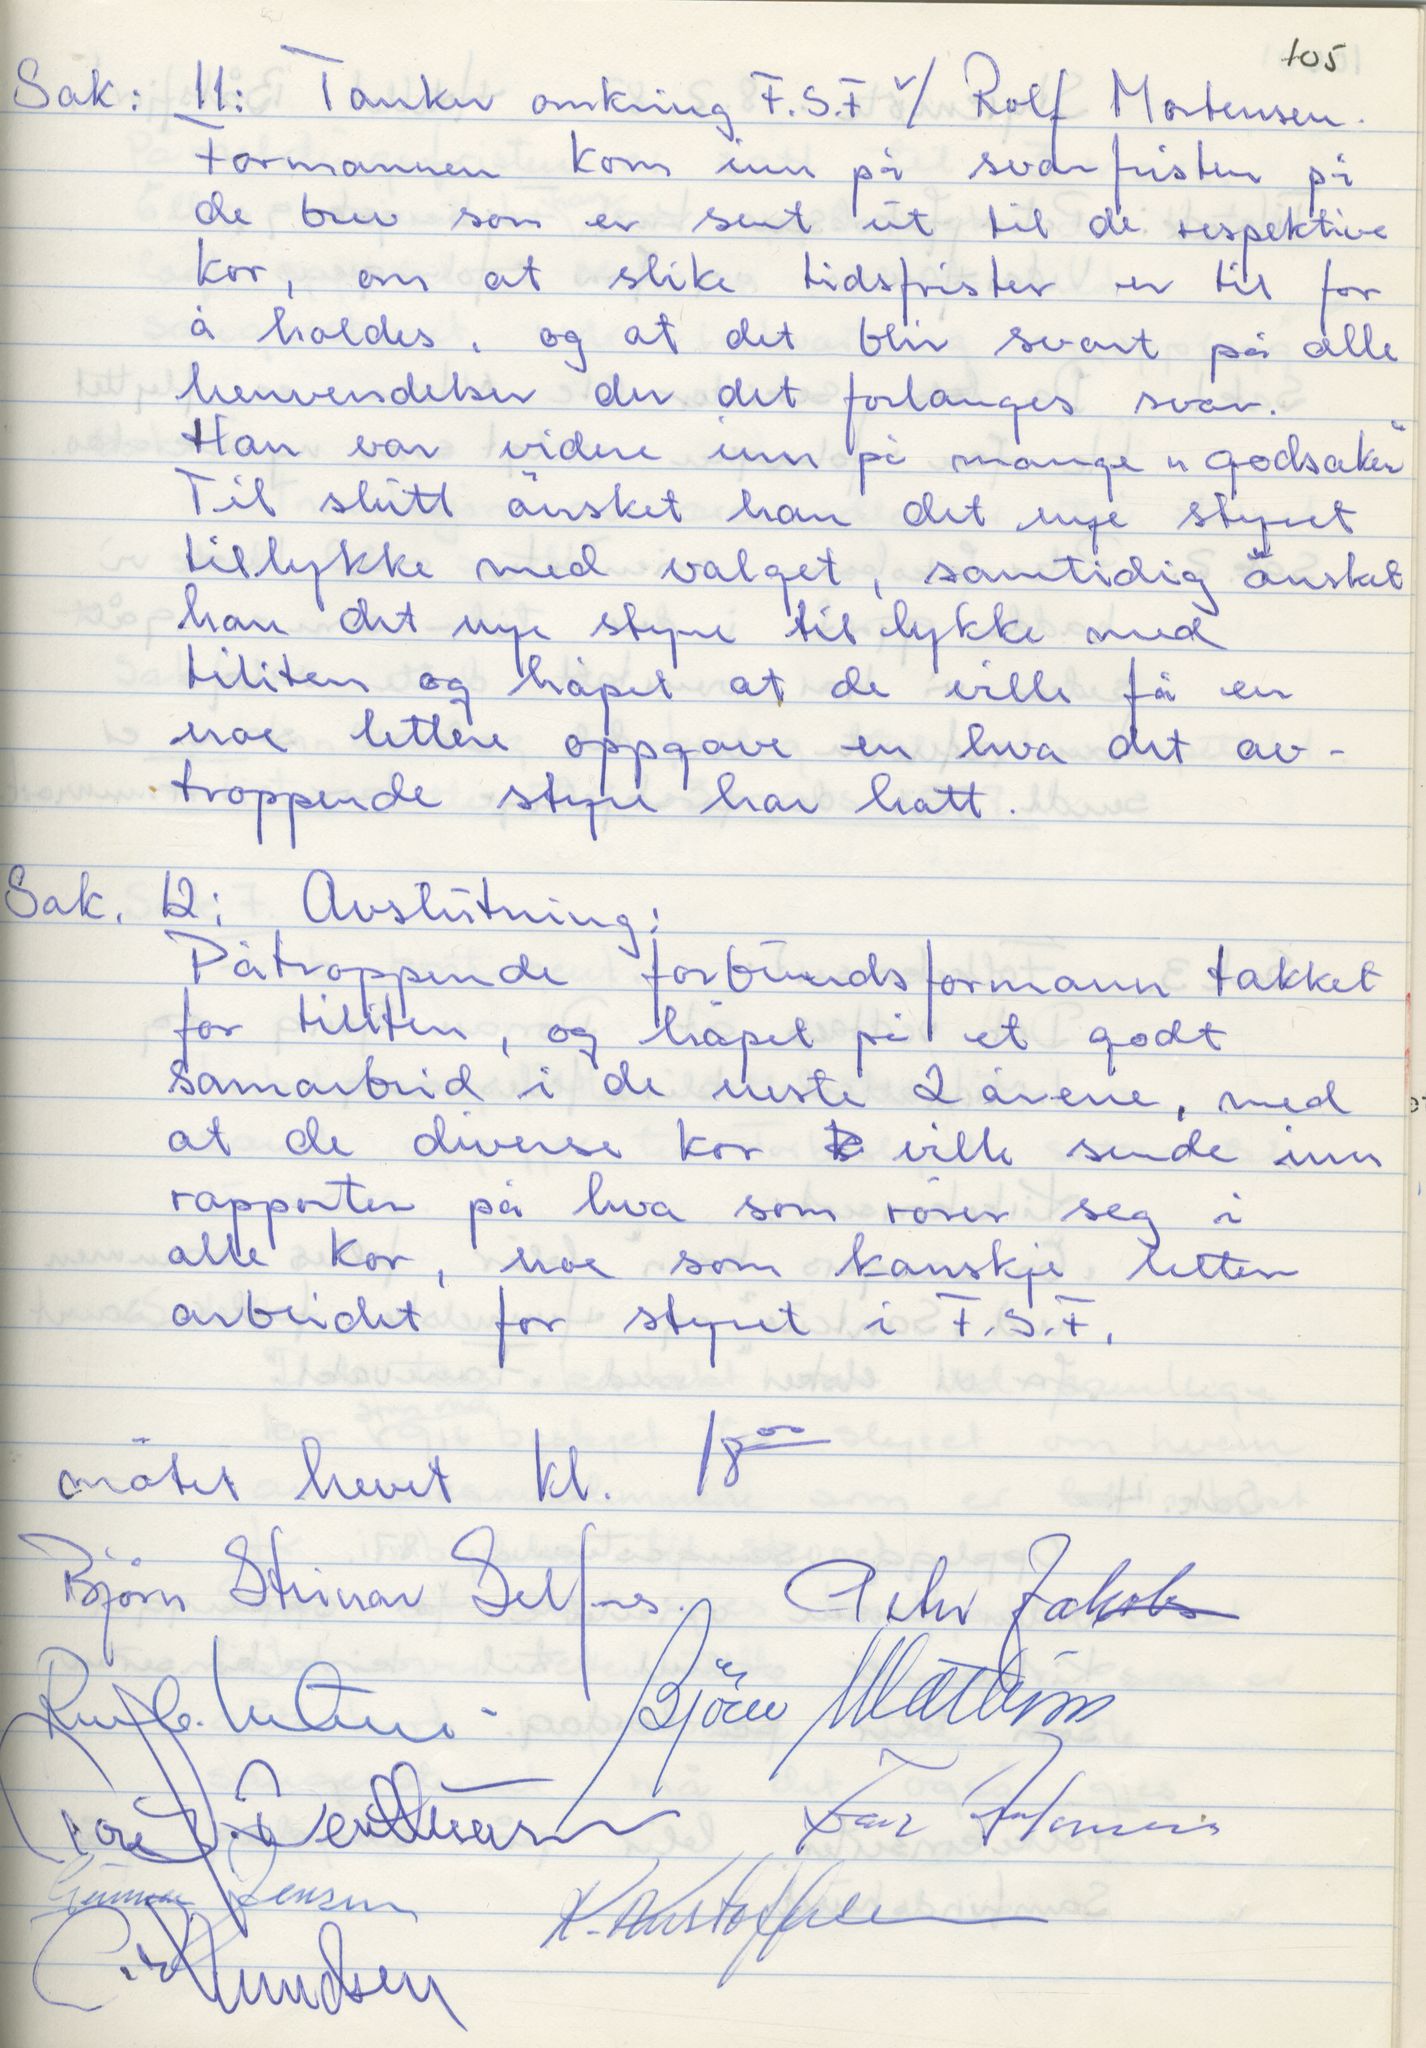 105
Sak: 11: Tanker omkring F.S.F v/ Rolf Mortensen.
Formannen kom inn på svarfristen på
de brev som er sent ut til de respektive
kor, om at slike tidsfrister er til for
å holdes, og at det blir svart på alle
henvendelser der det forlanges svar.
Han var videre inn på mange "godsaker"
Til slutt ønsket han det nye styret
tillykke med valget, samtidig ønsket
han det nye styre til lykke med
tiliten og håpet at de ville få en
noe lettere oppgave en hva det av-
troppende styre har hatt.
Sak. 12: Avslutning:
Påtroppende forbundsformann takket
for tilliten, og håpet på et godt
samarbeid i de neste 2 årene, med
at de diverse kor ville sende inn
rapporter på hva som rører seg i
alle kor, noe som kanskje letter
arbeidet for styret i F.S.F.
møtet hevet kl. 18⁰⁰
Bjørn Steinar Selfors. Peter Jakobs
Bjørn
Gunnar Jensen K. Kristoffersen
Knudsen